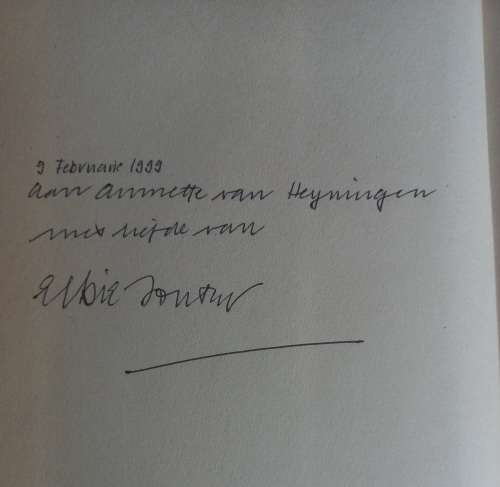 9 Februarie 1999
Aan Annette van Heyningen
met liefde van
Elbie